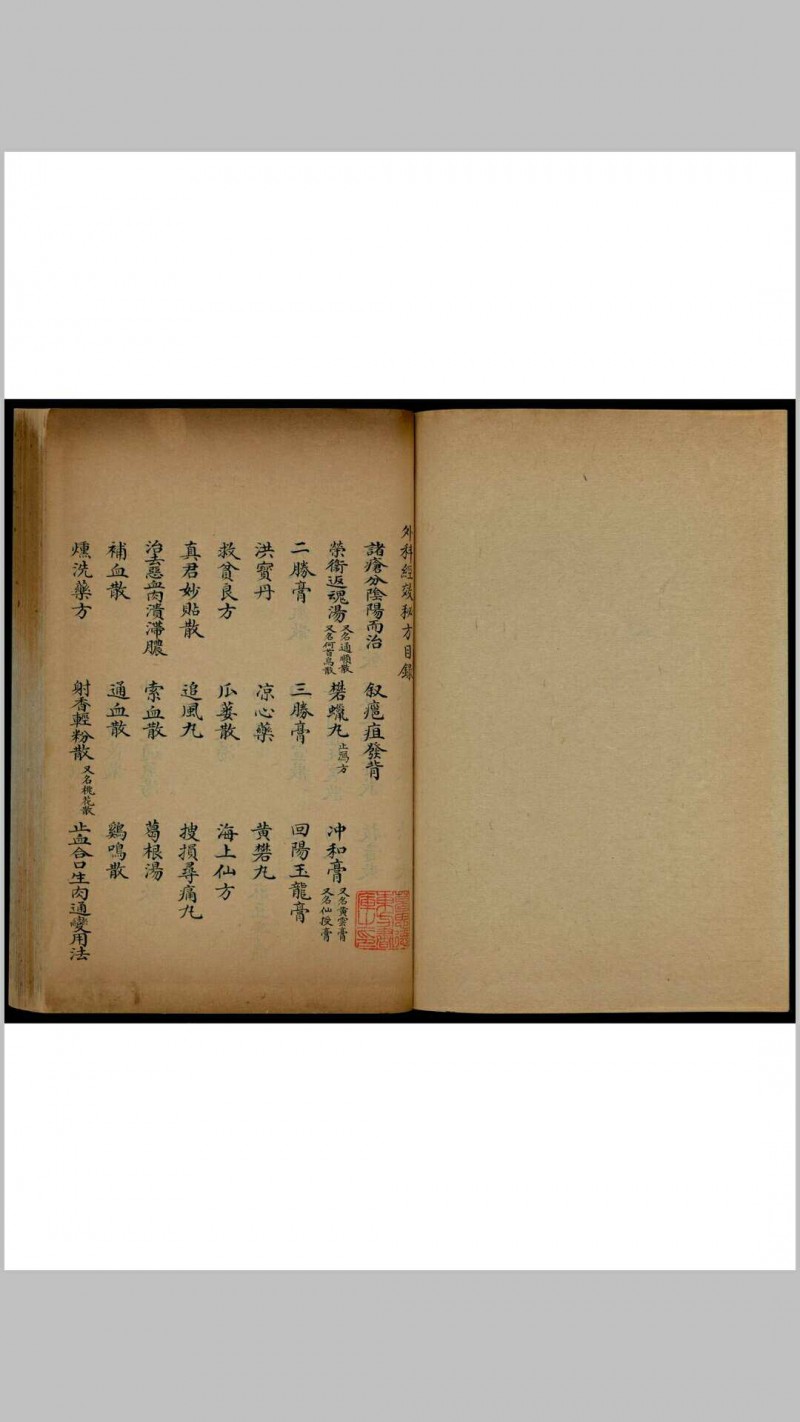 外科經效秘方目錄
諸瘡分陰陽而治 叙癰疽發背
榮衛返魂湯 又名通順散 又名何首烏散 礬蠟丸 止瀉方 冲和膏 又名黃雲膏 又名仙授膏
二勝膏 三勝膏 回陽玉龍膏
洪寳丹 凉心藥 黃礬丸
救貧良方 瓜蔞散 海上仙方
真君妙貼散 追風丸 搜損尋痛丸
治去惡血肉潰滯膿 索血散 葛根湯
補血散 通血散 鷄鳴散
燻洗藥方 射香輕粉散 又名桃花散 止血合口生肉通變用法